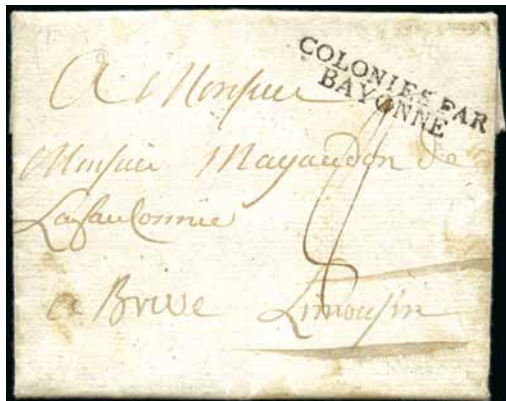 COLONIES PAR
BAYONNE
A Monsieur
Monsieur Mayaudon de
a Brive Limousin